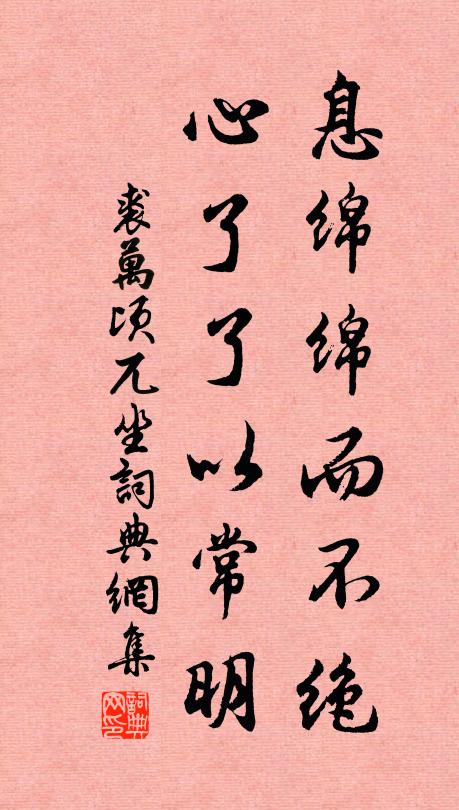 息绵绵而不绝
心了了以常明
裘萬顷兀坐詞典網集
詞典網印